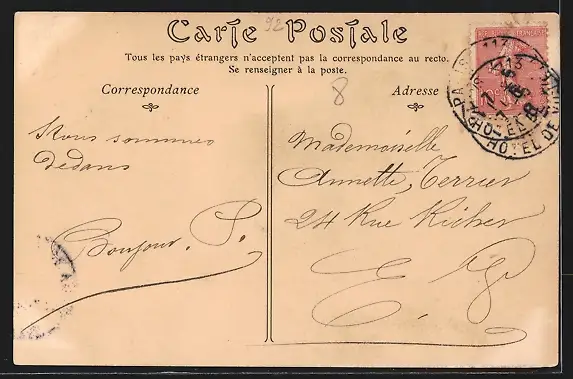 92
Carte Postale
Tous les pays étrangers n'acceptent pas la correspondance au recto.
Se renseigner à la poste.
Correspondance
Adresse
8
Nous sommes
dedans
Bonjour. P.
Mademoiselle
Annette Terrier
24 Rue Richer
E. V.
REPUBLIQUE FRANÇAISE
10 c
PARIS 113
HOTEL DE